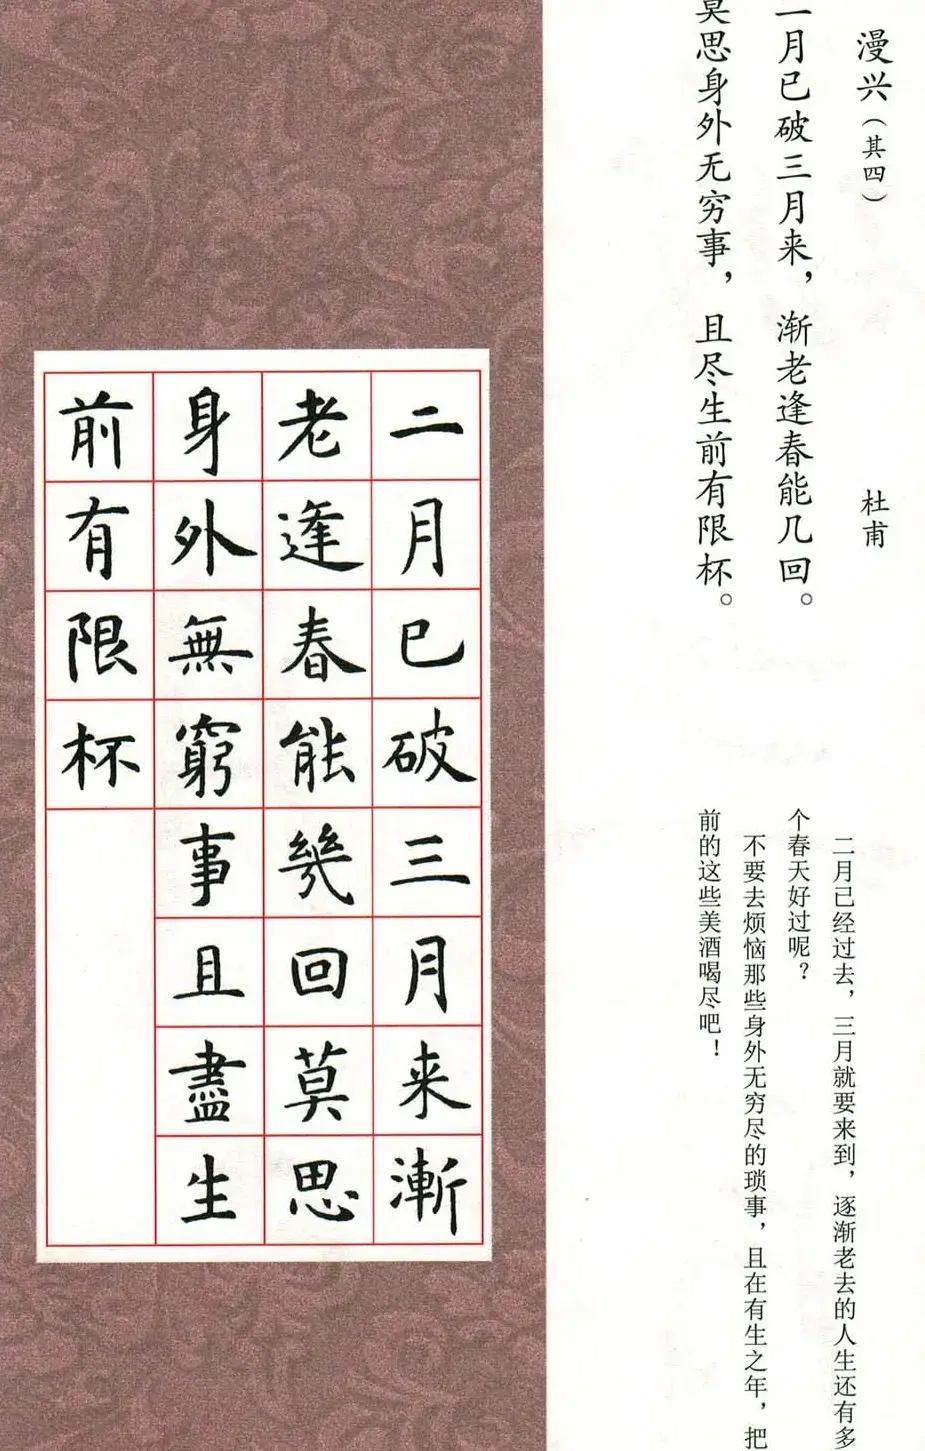 漫兴（其四）
杜甫
二月已破三月来，渐老逢春能几回。
莫思身外无穷事，且尽生前有限杯。
二月已经过去，三月就要来到，逐渐老去的人生还有多
个春天好过呢？
不要去烦恼那些身外无穷尽的琐事，且在有生之年，把
前的这些美酒喝尽吧！
二月已破三月来漸
老逢春能幾回莫思
身外無窮事且盡生
前有限杯